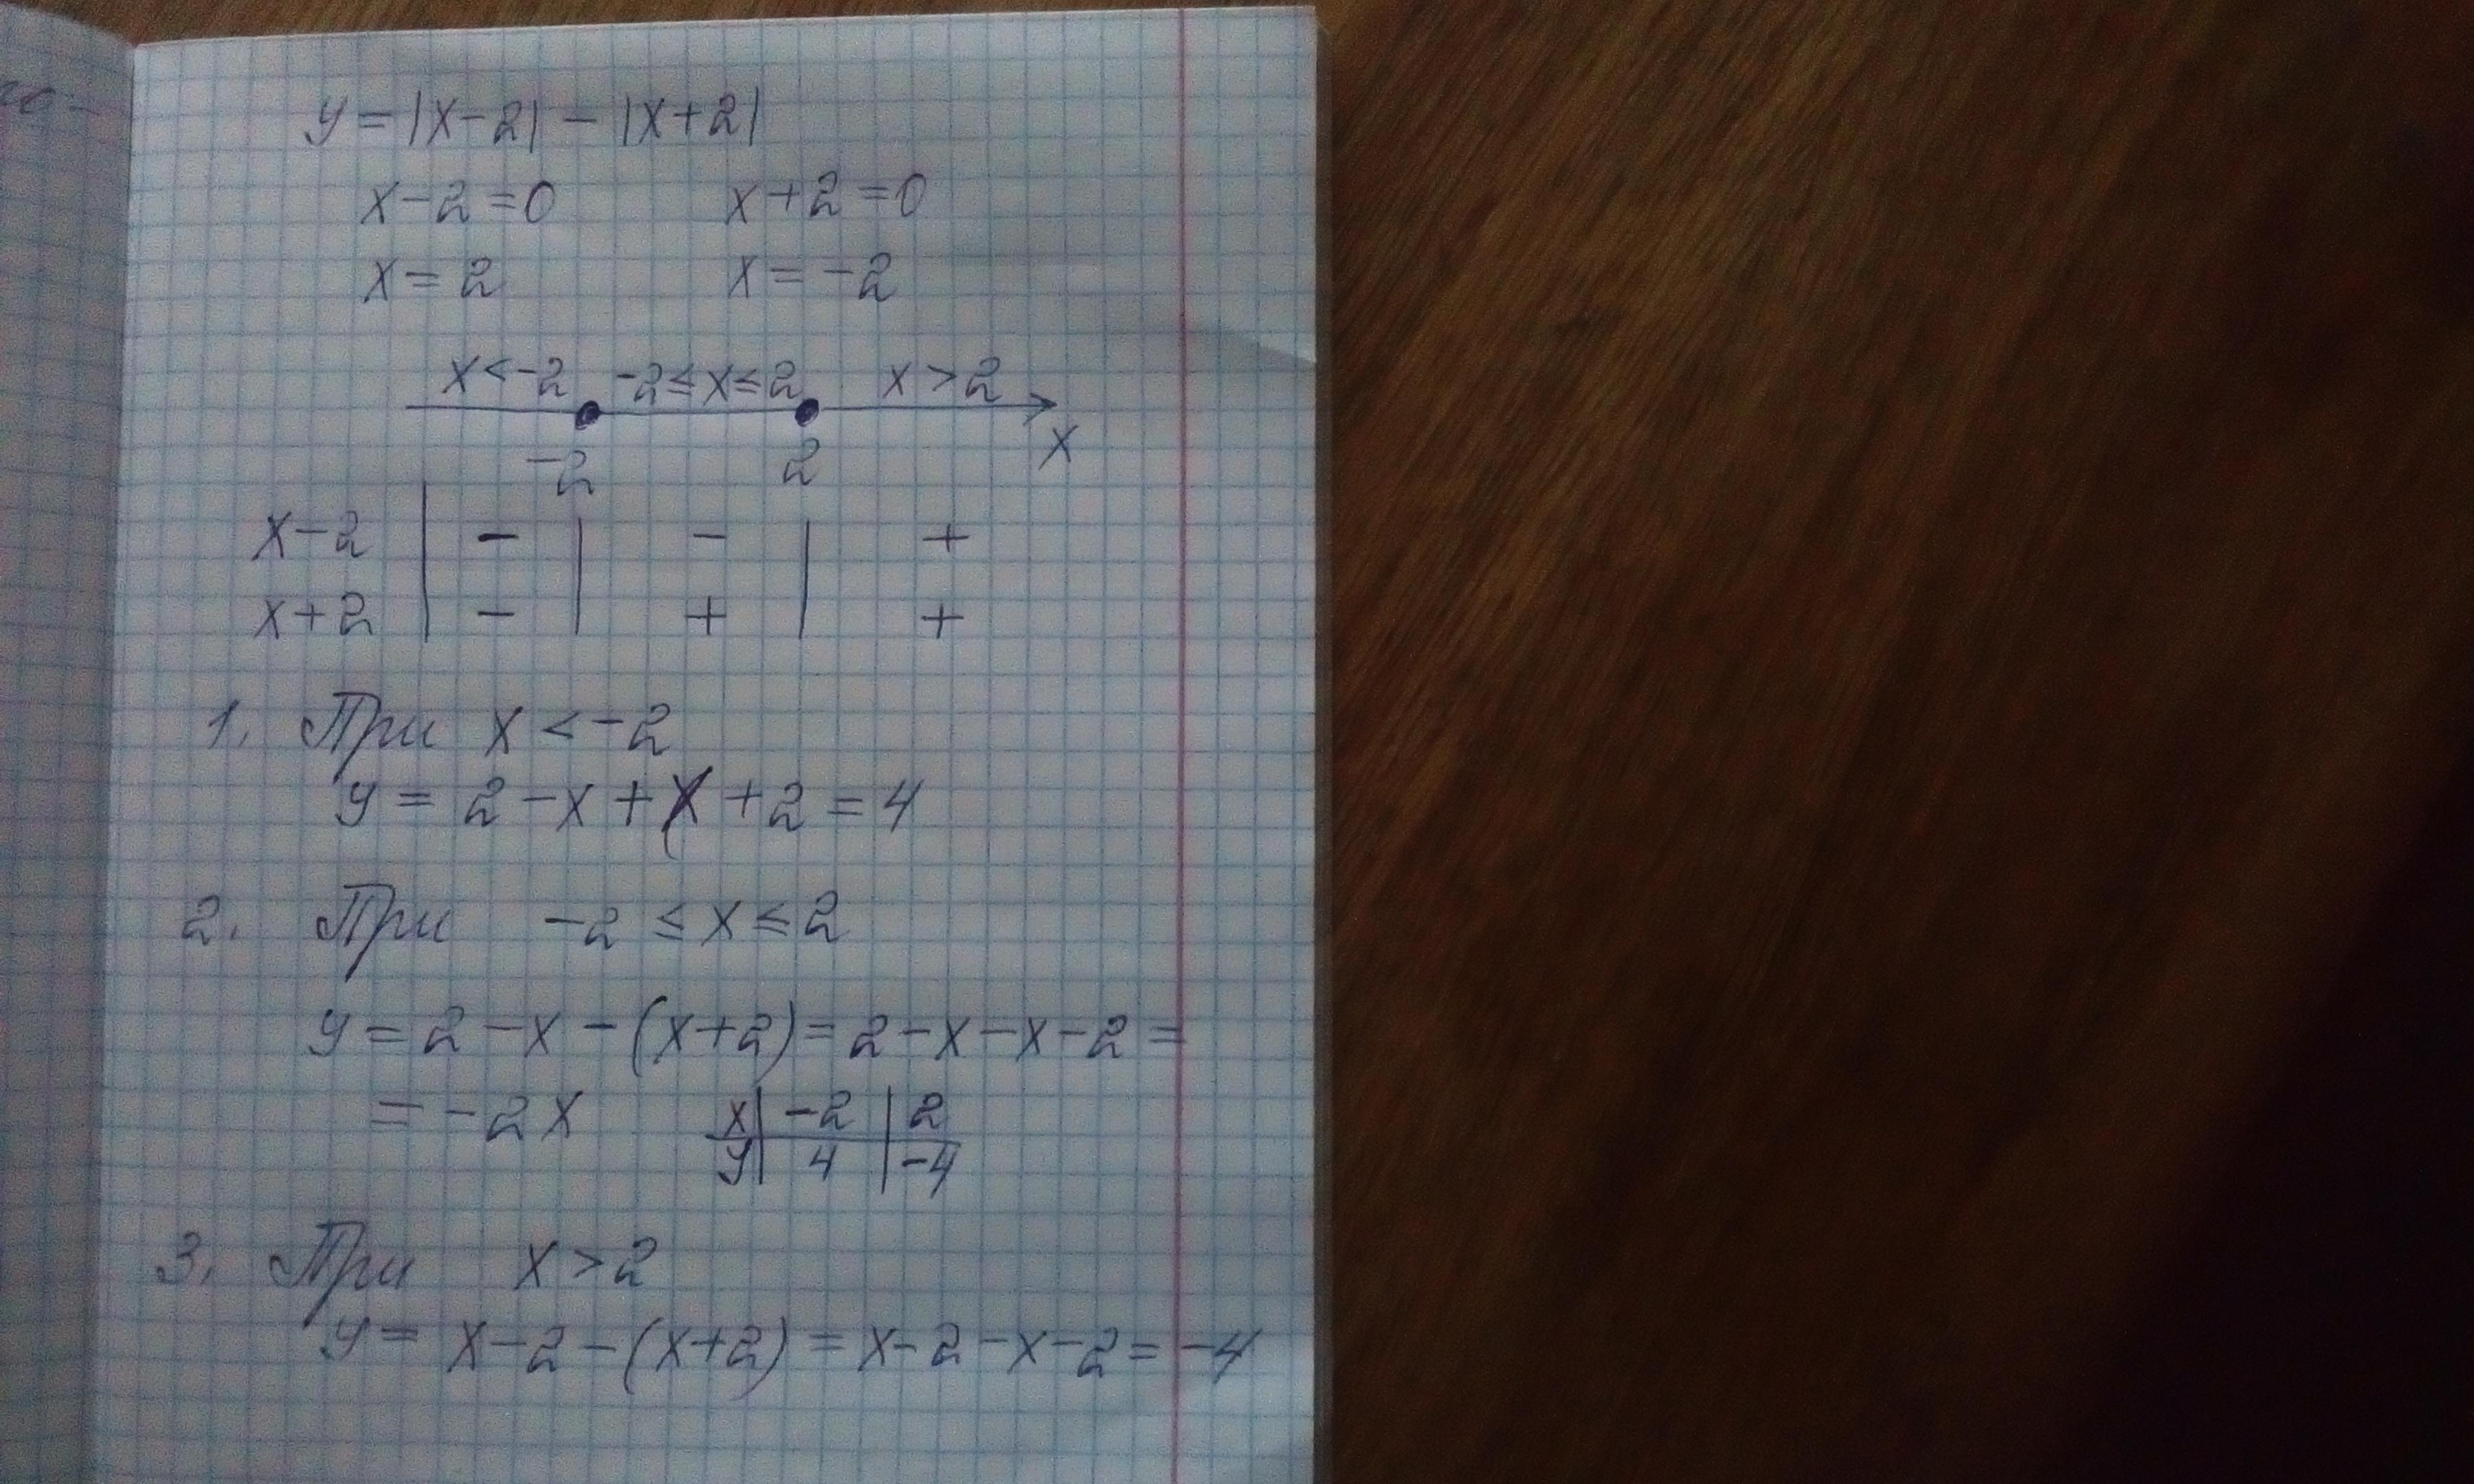 y = |x-2| - |x+2|
x-2=0 x+2=0
x=2 x=-2
x<-2 -2≤x≤2 x>2
-2 2 x
x-2 | - | - | +
x+2 | - | + | +
1. При x<-2
y = 2-x+x+2=4
2. При -2≤x≤2
y=2-x-(x+2)=2-x-x-2=
=-2x x | -2 | 2
y | 4 | -4
3. При x>2
y= x-2-(x+2)=x-2-x-2=-4